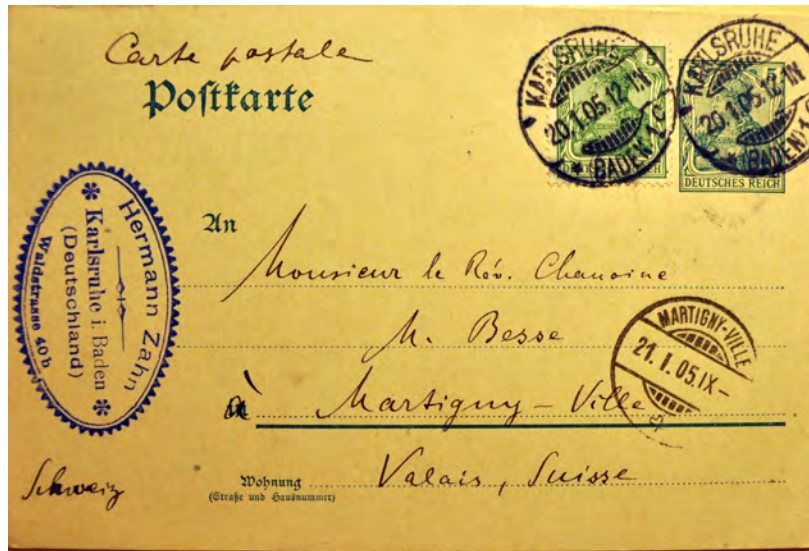 Carte postale
Postkarte
5
5
KARLSRUHE
20.1.05.12-1N
* (BADEN) 1.C.
KARLSRUHE
20.1.05.12-1N
* (BADEN) 1.C.
DEUTSCHES REICH
Hermann Zahn
Karlsruhe i. Baden
(Deutschland)
Waldstrasse 40b
An
Monsieur le Rév. Chanoine
M. Besse
à Martigny-Ville
MARTIGNY-VILLE
21.I.05.IX-
Wohnung
(Straße und Hausnummer)
Valais, Suisse
Schweiz